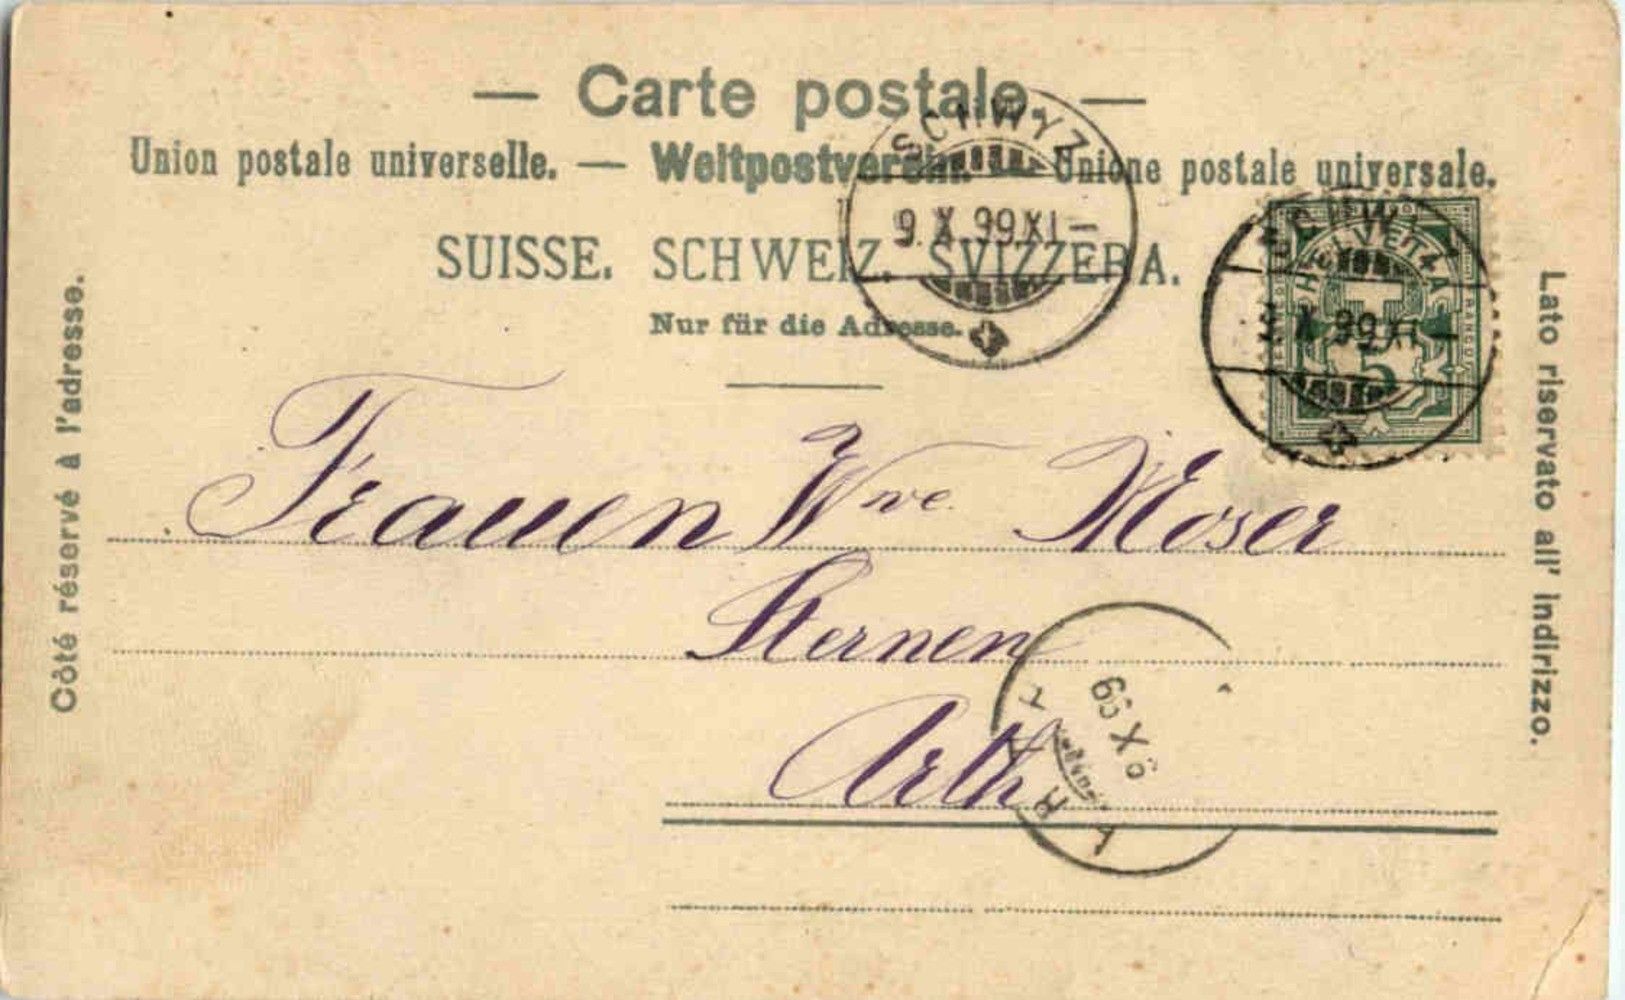 — Carte postale. —
Union postale universelle. — Weltpostverein. — Unione postale universale.
SUISSE. SCHWEIZ. SVIZZERA.
Nur für die Adresse.
Côté réservé à l'adresse.
Lato riservato all' indirizzo.
SCHWYZ
9.X.99.XI–
SCHWYZ
9.X.99.XI–
HELVETIA
5
Frauen Wwe. Moser
Sternen
Arth
ARTH
9.X.99